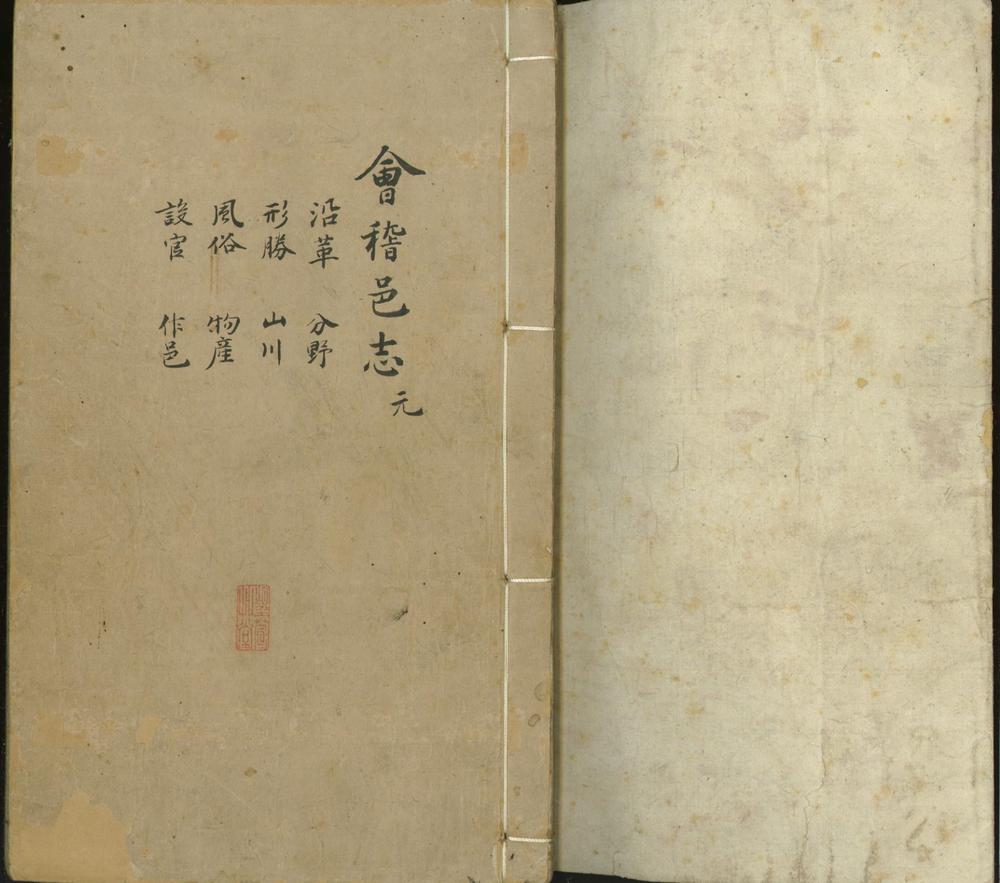 會稽邑志 元
沿革 分野
形勝 山川
風俗 物産
設官 作邑